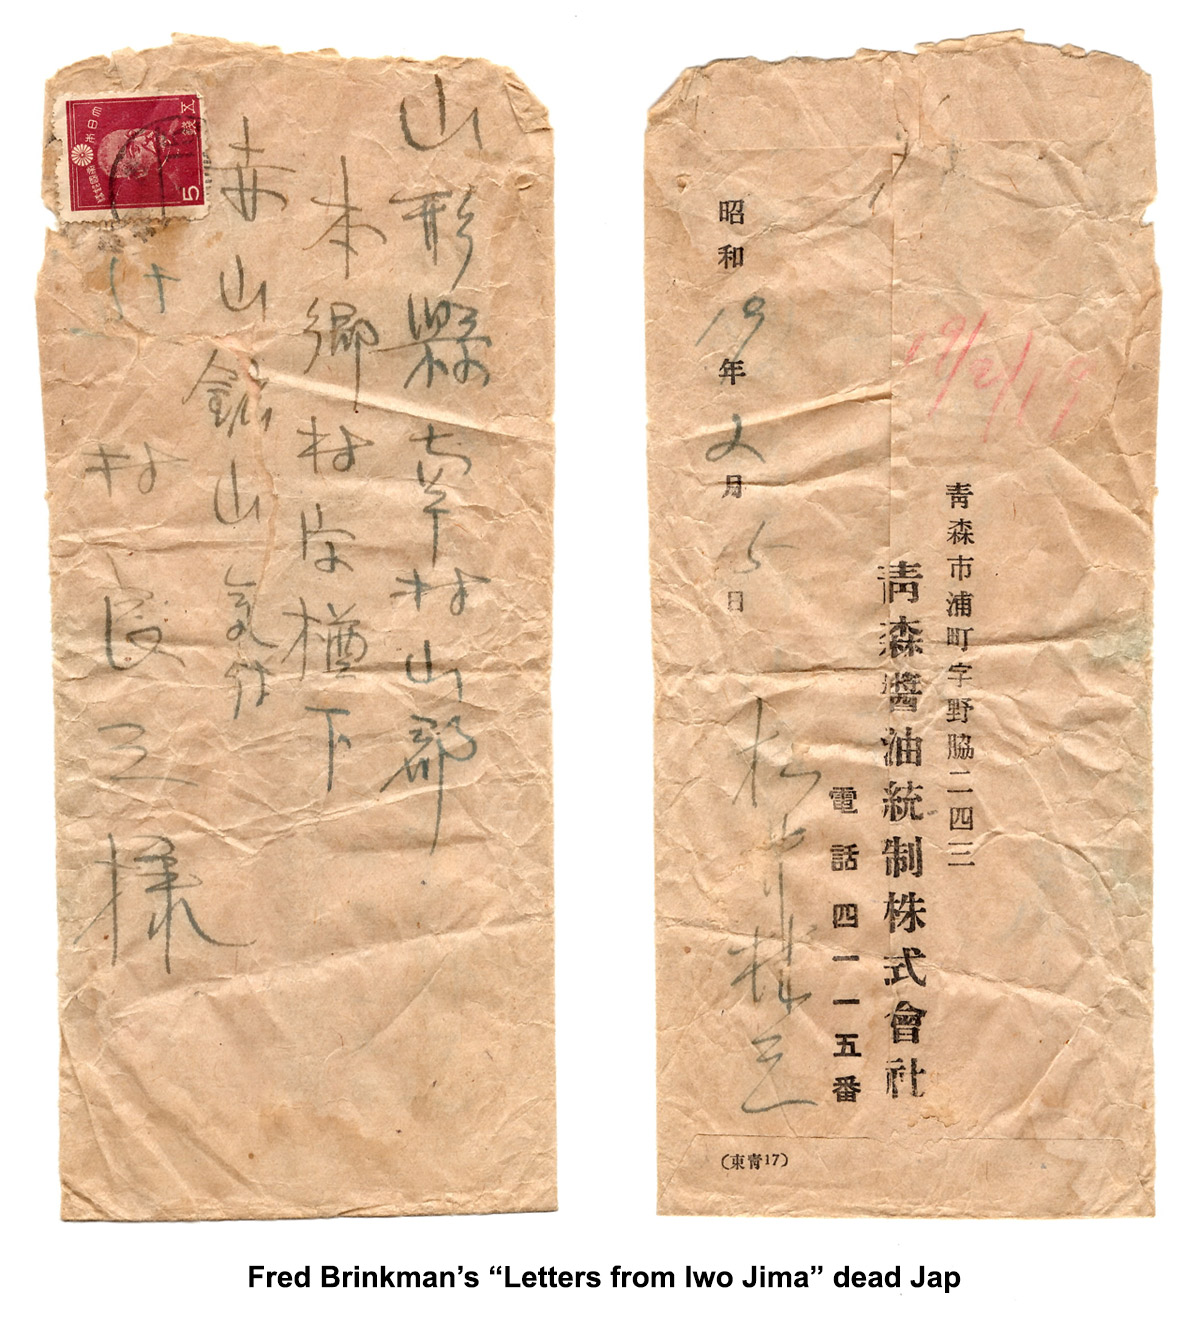 五錢
大日本帝國郵便
5
山形縣南村山郡
本郷村字楢下
赤山鉱山気付
竹村良三様
19/2/19
青森市浦町字野脇二四三
青森醬油統制株式會社
電話四一一五番
昭和19年2月15日
(東青17)
Fred Brinkman’s “Letters from Iwo Jima” dead Jap